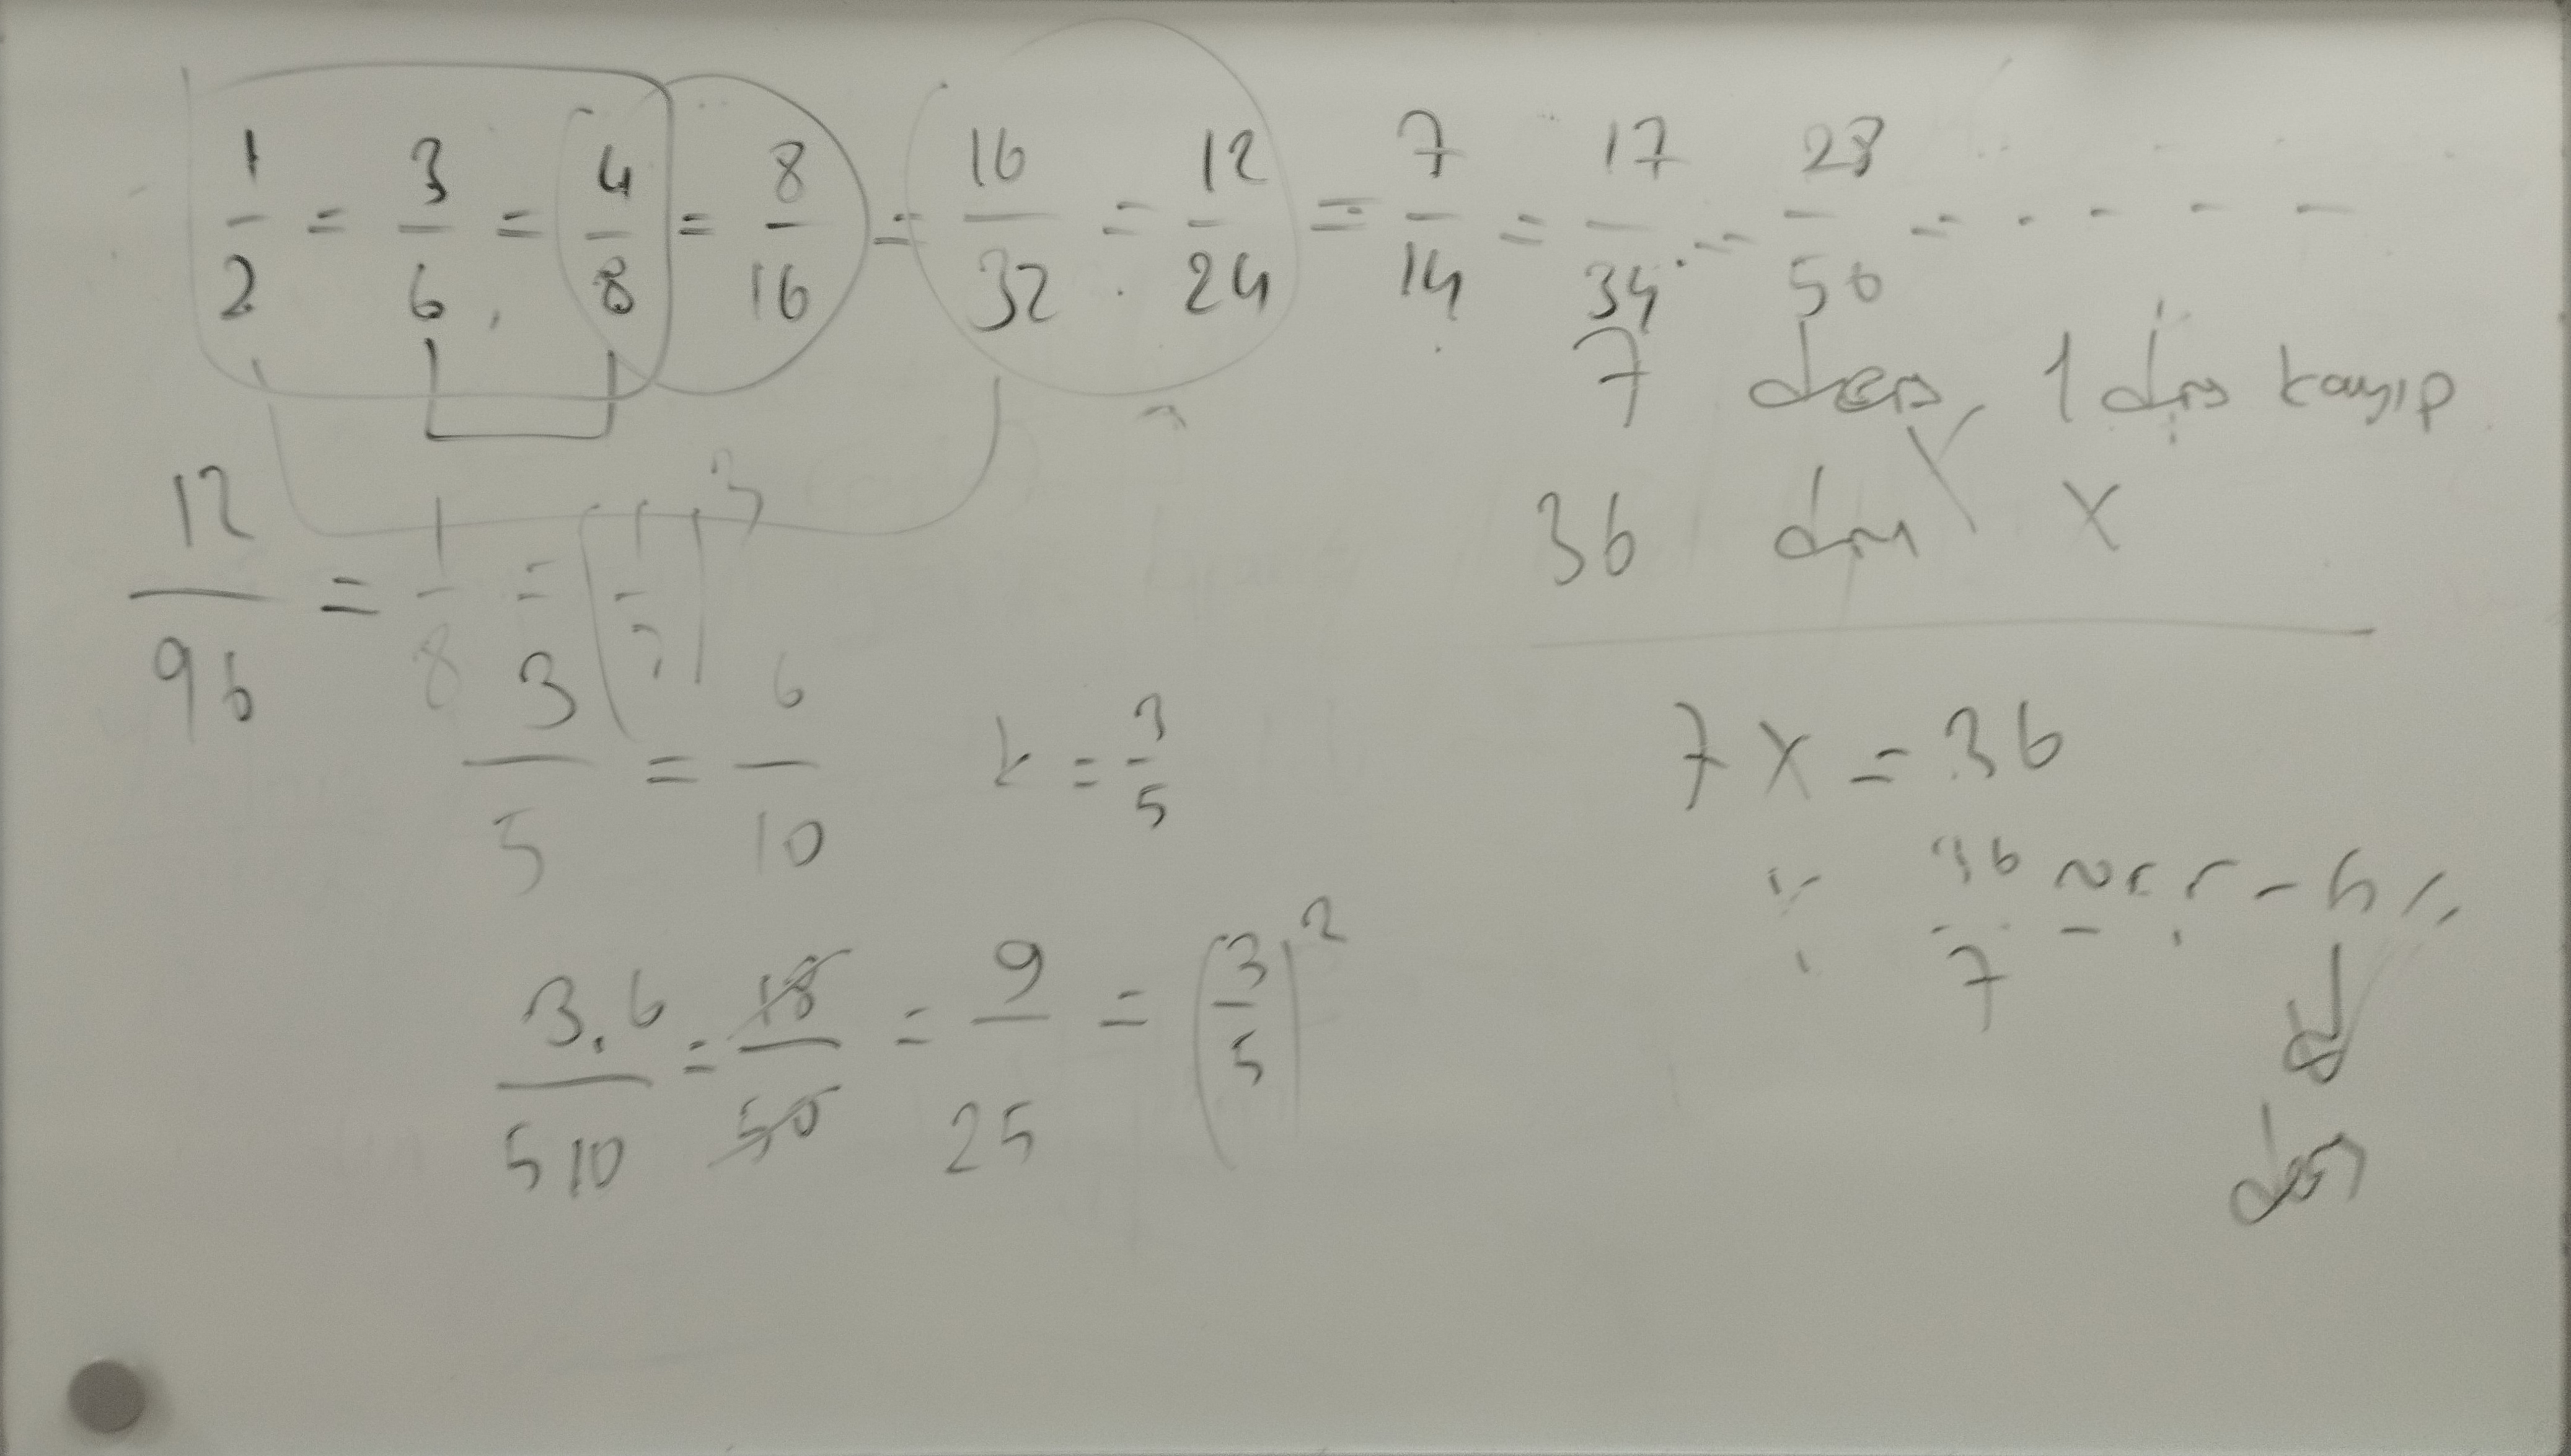 1/2 = 3/6 = 4/8 = 8/16 = 16/32 = 12/24 = 7/14 = 17/34 = 28/56 = - - - -
7 ders 1 ders kayıp
36 ders x
12/96 = 1/8 = (1/2)^3
7x = 36
3/5 = 6/10 k = 3/5
36/7
3.6/5 10 = 18/50 = 9/25 = (3/5)^2
ders